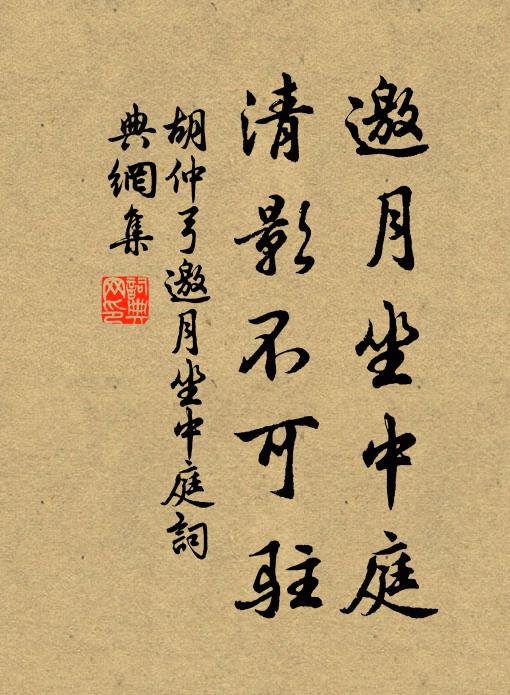 邀月坐中庭
清影不可駐
胡仲弓邀月坐中庭詞
典網集
詞典網印